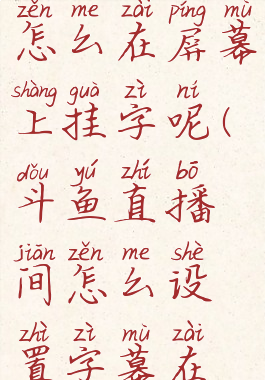 zěn me zài píng mù
怎么在屏幕
shàng guà zì ní
上挂字呢(
dǒu yú zhí bō
斗鱼直播
jiān zěn me shè
间怎么设
zhì zì mù zài
置字幕在